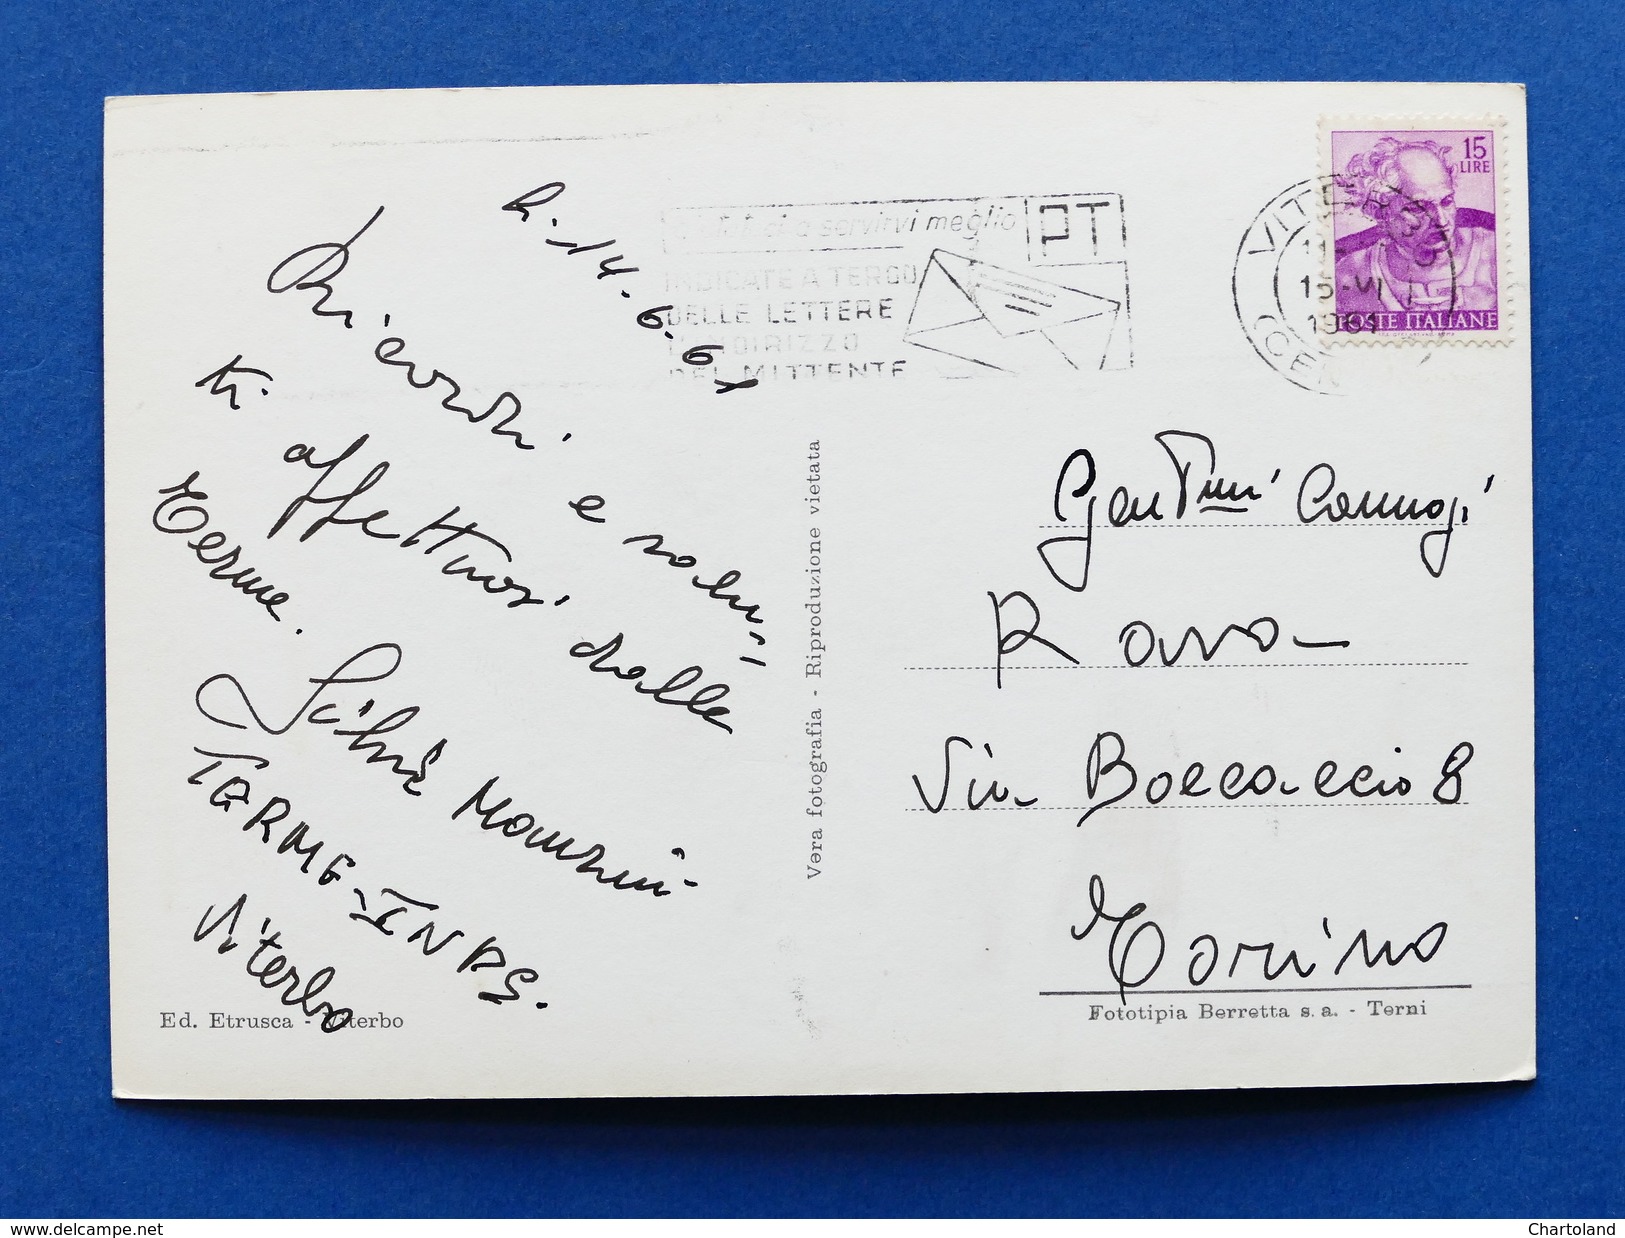 lì 14.6.61
Ricordi e salu-
ti affettuosi dalle
Terme.
Silvé
TERME-INPS.
Viterbo
Ed. Etrusca - Viterbo
Vera fotografia - Riproduzione vietata
Aiutateci a servirvi meglio
PT
INDICATE A TERGO
DELLE LETTERE
L'INDIRIZZO
DEL MITTENTE
VITERBO
15-VI
1961
15
LIRE
POSTE ITALIANE
Gent.mi Coniugi
Rava
Via Boccaccio 8
Torino
Fototipia Berretta s. a. - Terni
www.delcampe.net
Chartoland